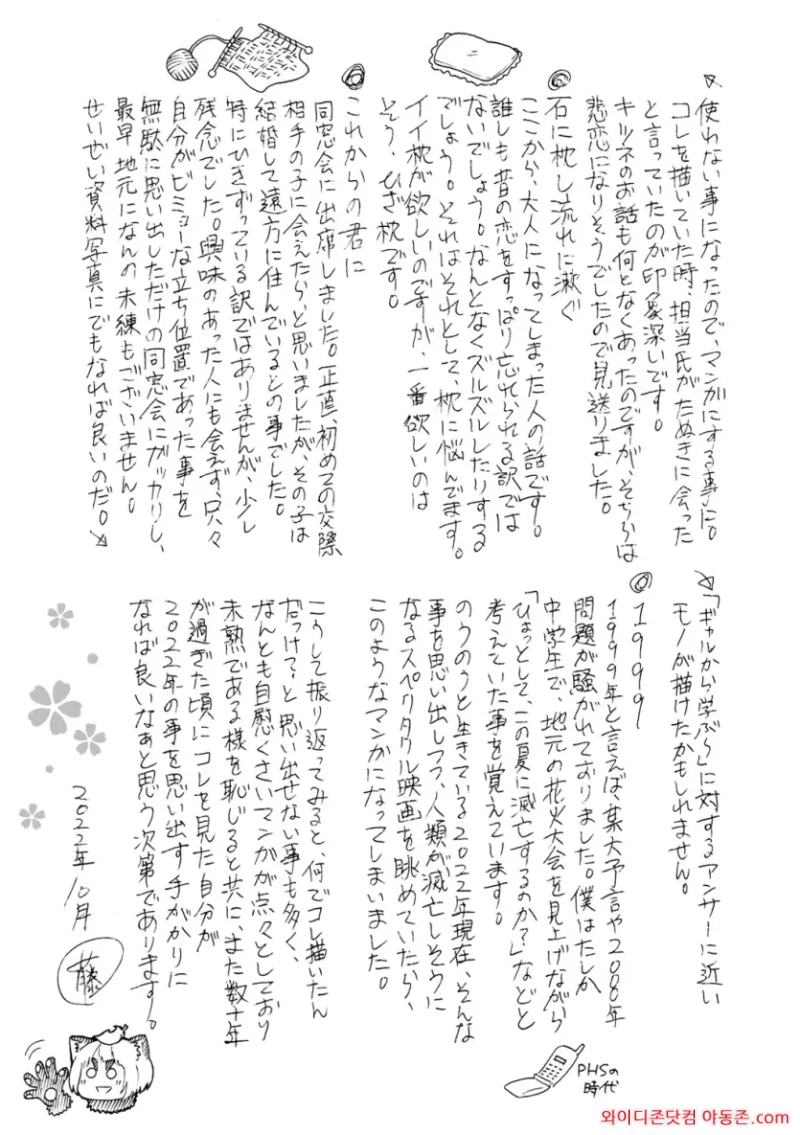 使わない事になったので、マンガにする事に。
コレを描いていた時、担当氏がたぬきに会った
と言っていたのが印象深いです。
キツネのお話も何となくあったのですが、そちらは
悲恋になりそうでしたので見送りました。
石に枕し流れに漱ぐ
ここから、大人になってしまった人の話です。
誰しも昔の恋をすっぱり忘れられる訳では
ないでしょう。なんとなくズルズルしたりする
でしょう。それはそれとして、枕に悩んでます。
イイ枕が欲しいのですが、一番欲しいのは
そう、ひざ枕です。
これからの君に
同窓会に出席しました。正直、初めての交際
相手の子に会えたら、と思いましたが、その子は
結婚して遠方に住んでいるとの事でした。
特にひきずっている訳ではありませんが、少し
残念でした。興味のあった人にも会えず、只々
自分がビミョーな立ち位置であった事を
無駄に思い出しただけの同窓会にガッカリし、
最早、地元になんの未練もございません。
せいぜい資料写真にでもなれば良いのだ。
「ギャルから学ぶら」に対するアンサーに近い
モノが描けたかもしれません。
1999
1999年と言えば某大予言や2000年
問題が騒がれておりました。僕はたしか
中学生で、地元の花火大会を見上げながら
「ひょっとして、この夏に滅亡するのか?」などと
考えていた事を覚えています。
のうのうと生きている2022年現在、そんな
事を思い出しつつ、人類が滅亡しそうに
なるスペクタクル映画を眺めていたら、
このようなマンガになってしまいました。
PHSの
時代
こうして振り返ってみると、何でコレ描いたん
だっけ?と思い出せない事も多く、
なんとも自慰くさいマンガが点々としており
未熟である様を恥じると共に、また数十年
が過ぎた頃にコレを見た自分が
2022年の事を思い出す手がかりに
なれば良いなぁと思う次第であります。
2022年10月
藤
와이디존닷컴 아동존.com